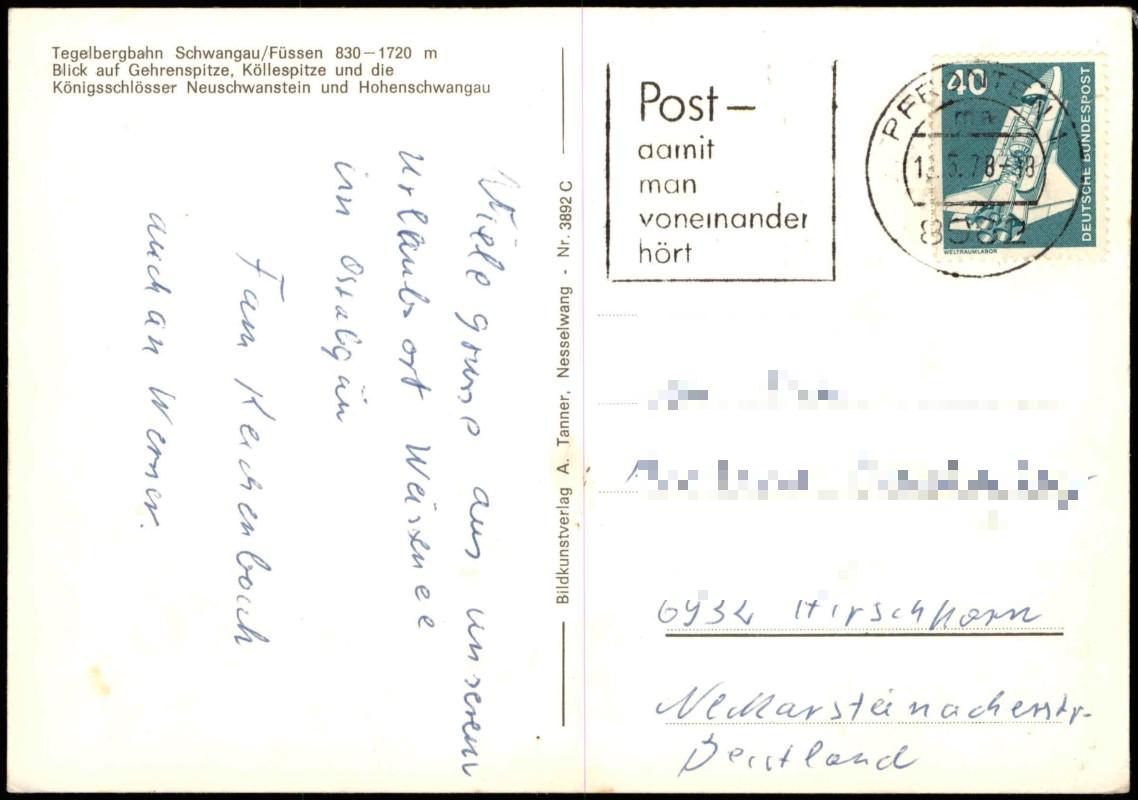 Tegelbergbahn Schwangau/Füssen 830–1720 m
Blick auf Gehrenspitze, Köllespitze und die
Königsschlösser Neuschwanstein und Hohenschwangau
Viele grüsse aus unserem
Urlaubsort Weissensee
im Ostallgäu
Fam Reichenbach
auch an Werner.
Bildkunstverlag A. Tanner, Nesselwang - Nr. 3892 C
Post –
damit
man
voneinander
hört
PFRONTEN
78-18
8962
40
DEUTSCHE BUNDESPOST
WELTRAUMLABOR
6932 Hirschhorn
Neckarsteinacherstr.
Deustland